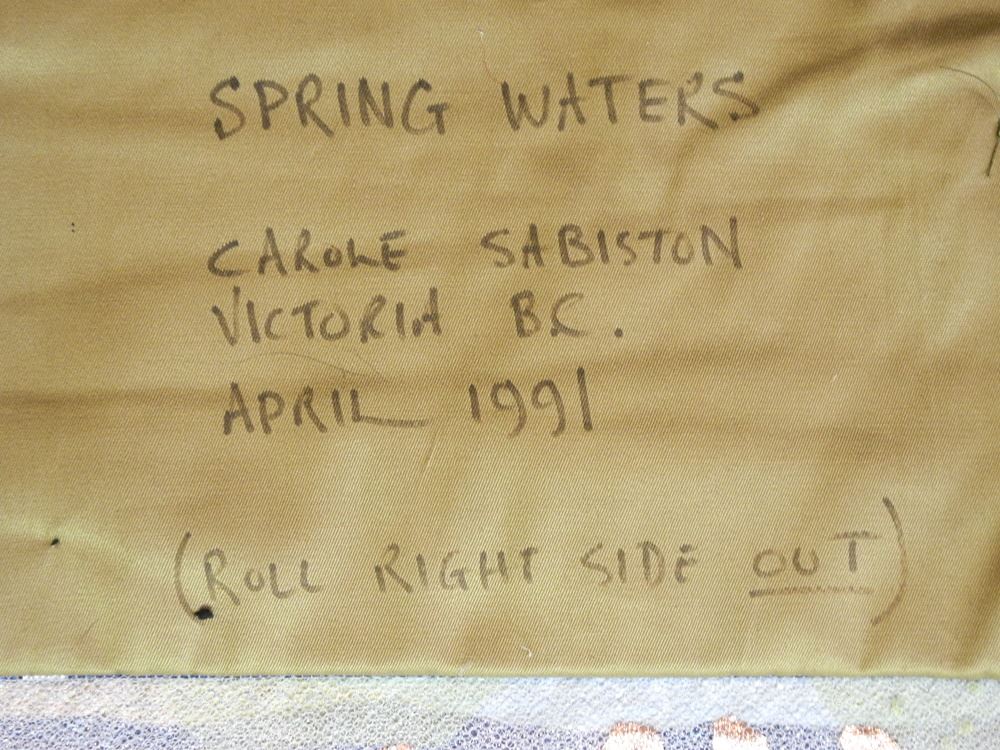 SPRING WATERS
CAROLE SABISTON
VICTORIA B.C.
APRIL 1991
(ROLL RIGHT SIDE OUT)